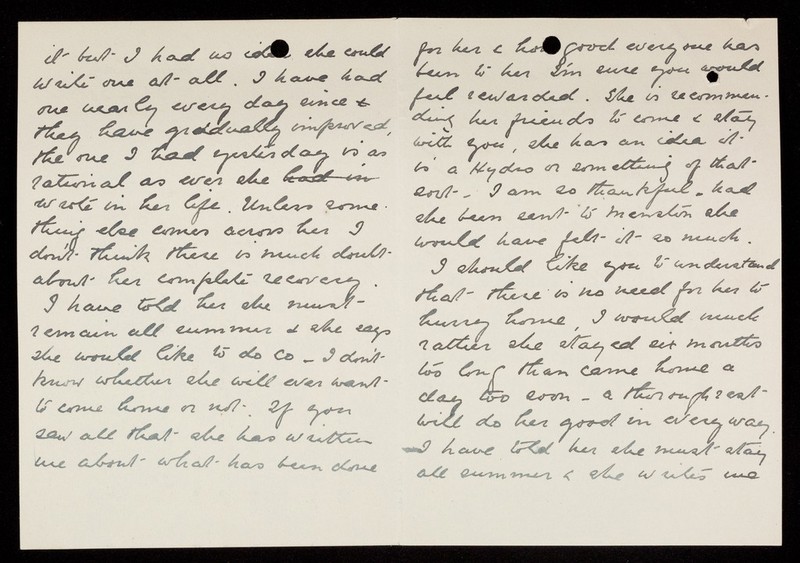 it but I had no idea she could
write one at all. I have had
one nearly every day since &
they have gradually improved,
the one I had yesterday is as
rational as ever she had in
wrote in her life. Unless some-
thing else comes across her I
don't think there is much doubt
about her complete recovery.
I have told her she must
remain all summer & she says
she would like to do so - I don't
know whether she will ever want
to come home or not. If you
saw all that she has written
me about what has been done
for her & how good everyone has
been to her I'm sure you would
feel rewarded. She is recommen-
ding her friends to come & stay
with you, she has an idea it
is a Hydro or something of that
sort - I am so thankful - had
she been sent to Menston she
would have felt it so much.
I should like you to understand
that there is no need for her to
hurry home, I would much
rather she stayed six months
too long than came home a
day too soon - a thorough rest
will do her good in every way.
I have told her she must stay
all summer & she writes me